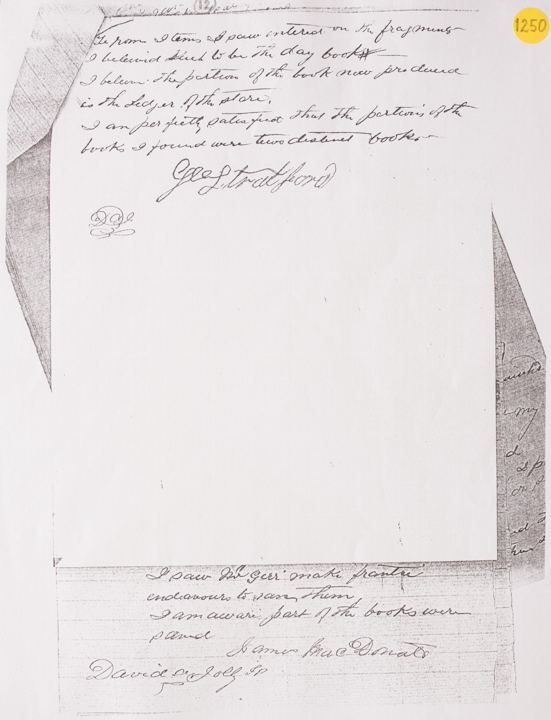 1250
(12)
From items I saw entered on the fragments
I believed such to be the day book
I believe the portion of the book now produced
is the Ledger of the store.
I am perfectly satisfied that the portions of the
books I found were two distinct books.
Geo Stratford
I saw Mr Geer make frantic
endeavours to save them,
I am aware part of the books were
saved
James MacDonald
David
my
d